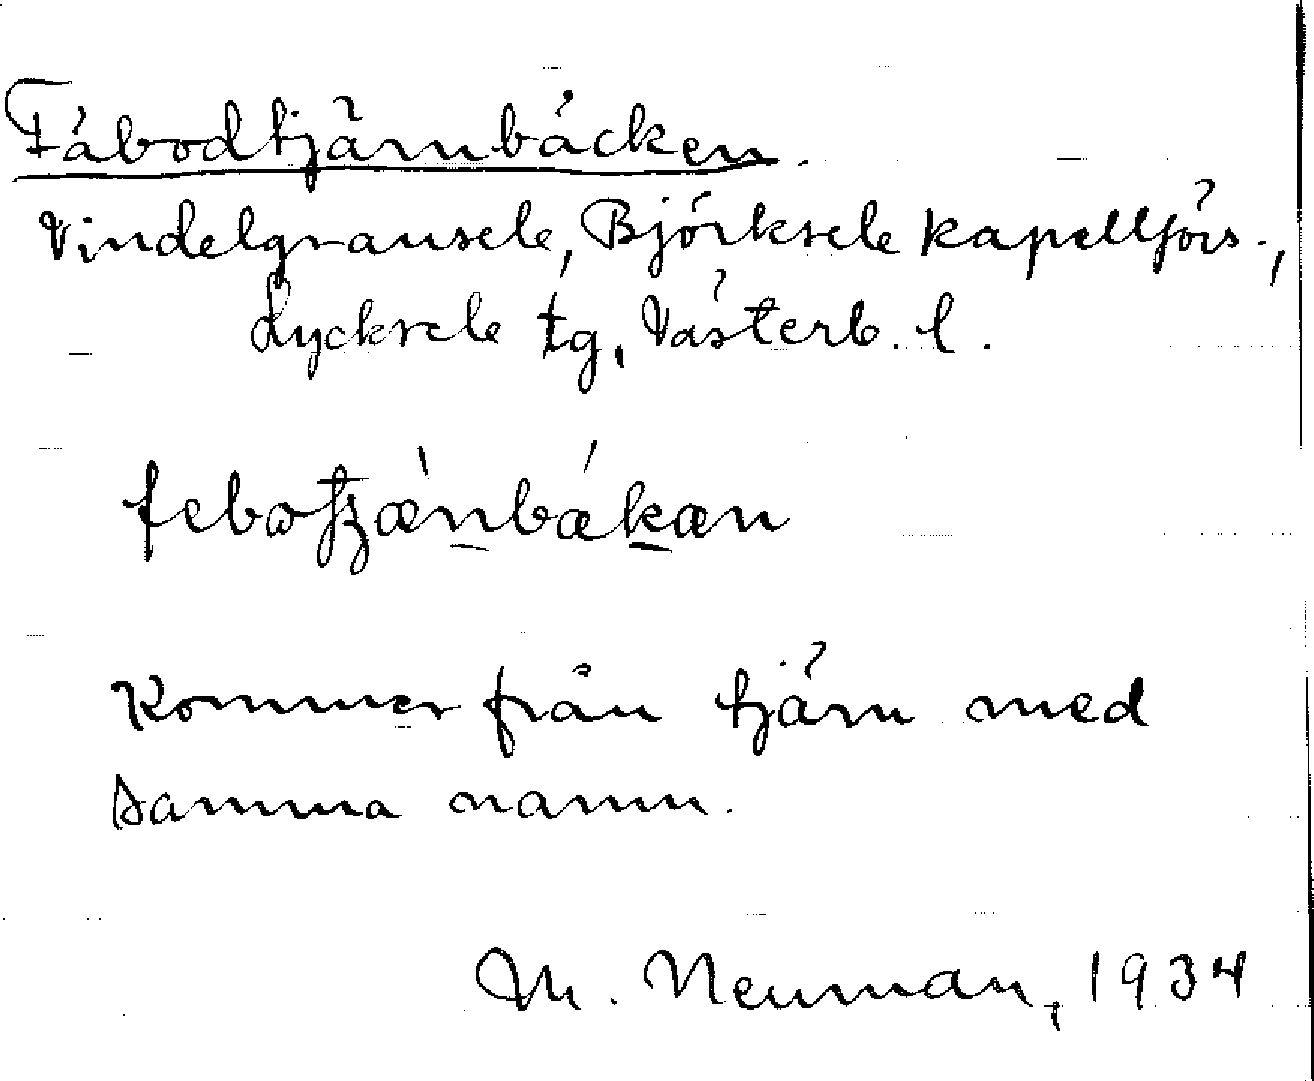 Fäbodtjärnbäcken.
Vindelgransele, Björksele kapellförs.,
Lycksele tg, Västerb. l.
febotʒæ̀nbǽkæn
Kommer från tjärn med
samma namn.
M. Neuman, 1934